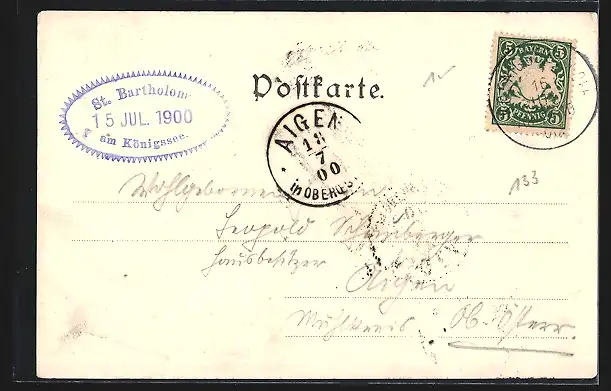 Postkarte.
St. Bartholom
15 JUL. 1900
am Königssee.
AIGEN
18
7
00
in OBERÖS
5 BAYERN 5
5 PFENNIG 5
133
Wohlgeboren
Leopold
Hausbesitzer
Aigen
Mühlkreis Ob. Österr.